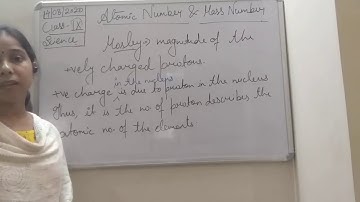 14/08/2020
Class-IX
Science
Atomic Number & Mass Number
Mosley⇒ magnitude of the
+vely charged protons.
in the nucleus
+ve charge is due to proton in the nucleus
Thus, it is the no of proton describes the
atomic no. of the elements